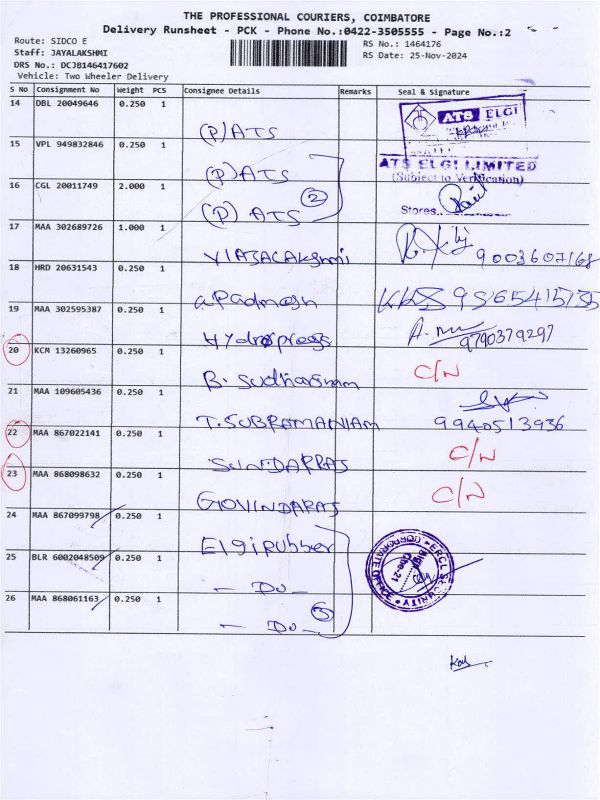 THE PROFESSIONAL COURIERS, COIMBATORE
Delivery Runsheet - PCK - Phone No.:0422-3505555 - Page No.:2
Route: SIDCO E
RS No.: 1464176
Staff: JAYALAKSHMI
RS Date: 25-Nov-2024
DRS No.: DCJB146417602
Vehicle: Two Wheeler Delivery
S No Consignment No Weight PCS Consignee Details Remarks Seal & Signature
14 DBL 20049646 0.250 1 (P) ATS
ATS ELGI
15 VPL 949832846 0.250 1 (P) ATS
ATS ELGI LIMITED
(Subject to Verification)
16 CGL 20011749 2.000 1 (P) ATS 2
Stores.
17 MAA 302689726 1.000 1 VIAJACAKshmi 9003607168
18 HRD 20631543 0.250 1 a Padmesh
19 MAA 302595387 0.250 1 Hydropress 9790379297
20 KCM 13260965 0.250 1 B. Sudharsnam C/N
21 MAA 109605436 0.250 1 T. SUBRAMANIAM 9940513936
22 MAA 867022141 0.250 1 SUNDARRAJ C/N
23 MAA 868098632 0.250 1 GOVINDARAJ C/N
24 MAA 867099798 0.250 1 Elgirubber
25 BLR 6002048509 0.250 1 - Do -
ERCL SECURITY
CORPORATE OFFICE
26 MAA 868061163 0.250 1 - Do - 3